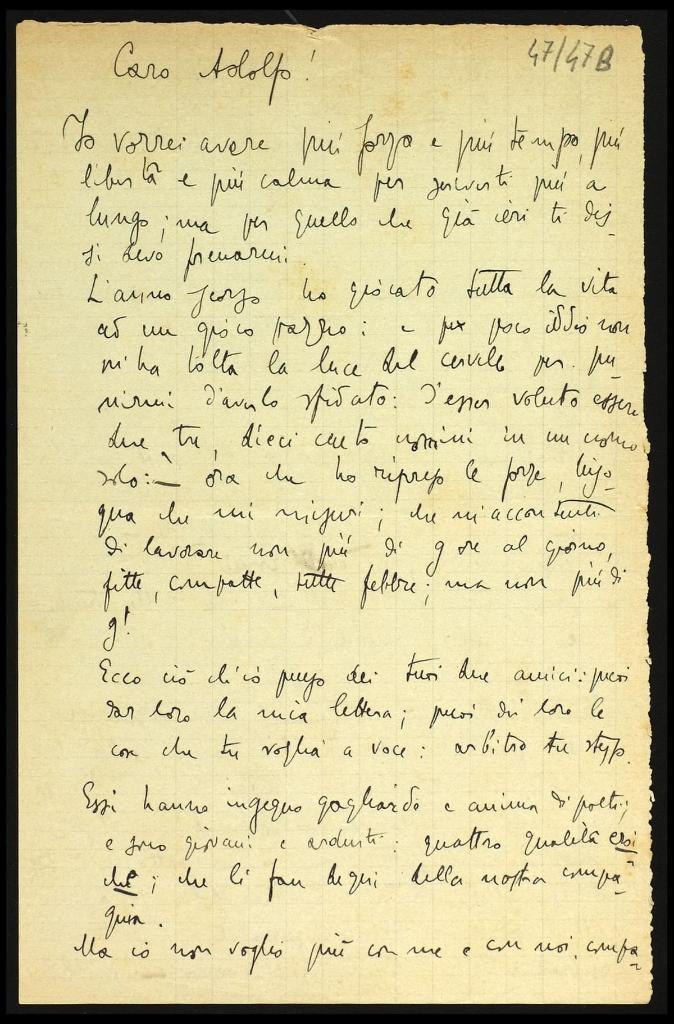 47/47B
Caro Adolfo!
Io vorrei avere più forza e più tempo, più
libertà e più calma per scriverti più a
lungo; ma per quello che già ieri ti dis-
si devo frenarmi.
L'anno scorso ho giocato tutta la vita
ad un gioco pazzo: e per poco iddio non
mi ha tolta la luce del cervello per pu-
nirmi d'averlo sfidato: d'esser voluto essere
due tre, dieci cento uomini in un uomo
solo: ora che ho ripreso le forze, biso-
gna che mi misuri; che m'accontenti
di lavorare non più di 9 ore al giorno,
fitte, compatte, tutte febbre; ma non più di
9!
Ecco ciò ch'io penso dei tuoi due amici: puoi
dar loro la mia lettera; puoi dir loro le
cose che tu voglia a voce: arbitro tu stesso.
Essi hanno ingegno gagliardo e anima di poeti;
e sono giovani e ardenti: quattro qualità eroi
che; che li fan degni della nostra compa-
gnia.
Ma io non voglio più con me e con noi, compa-